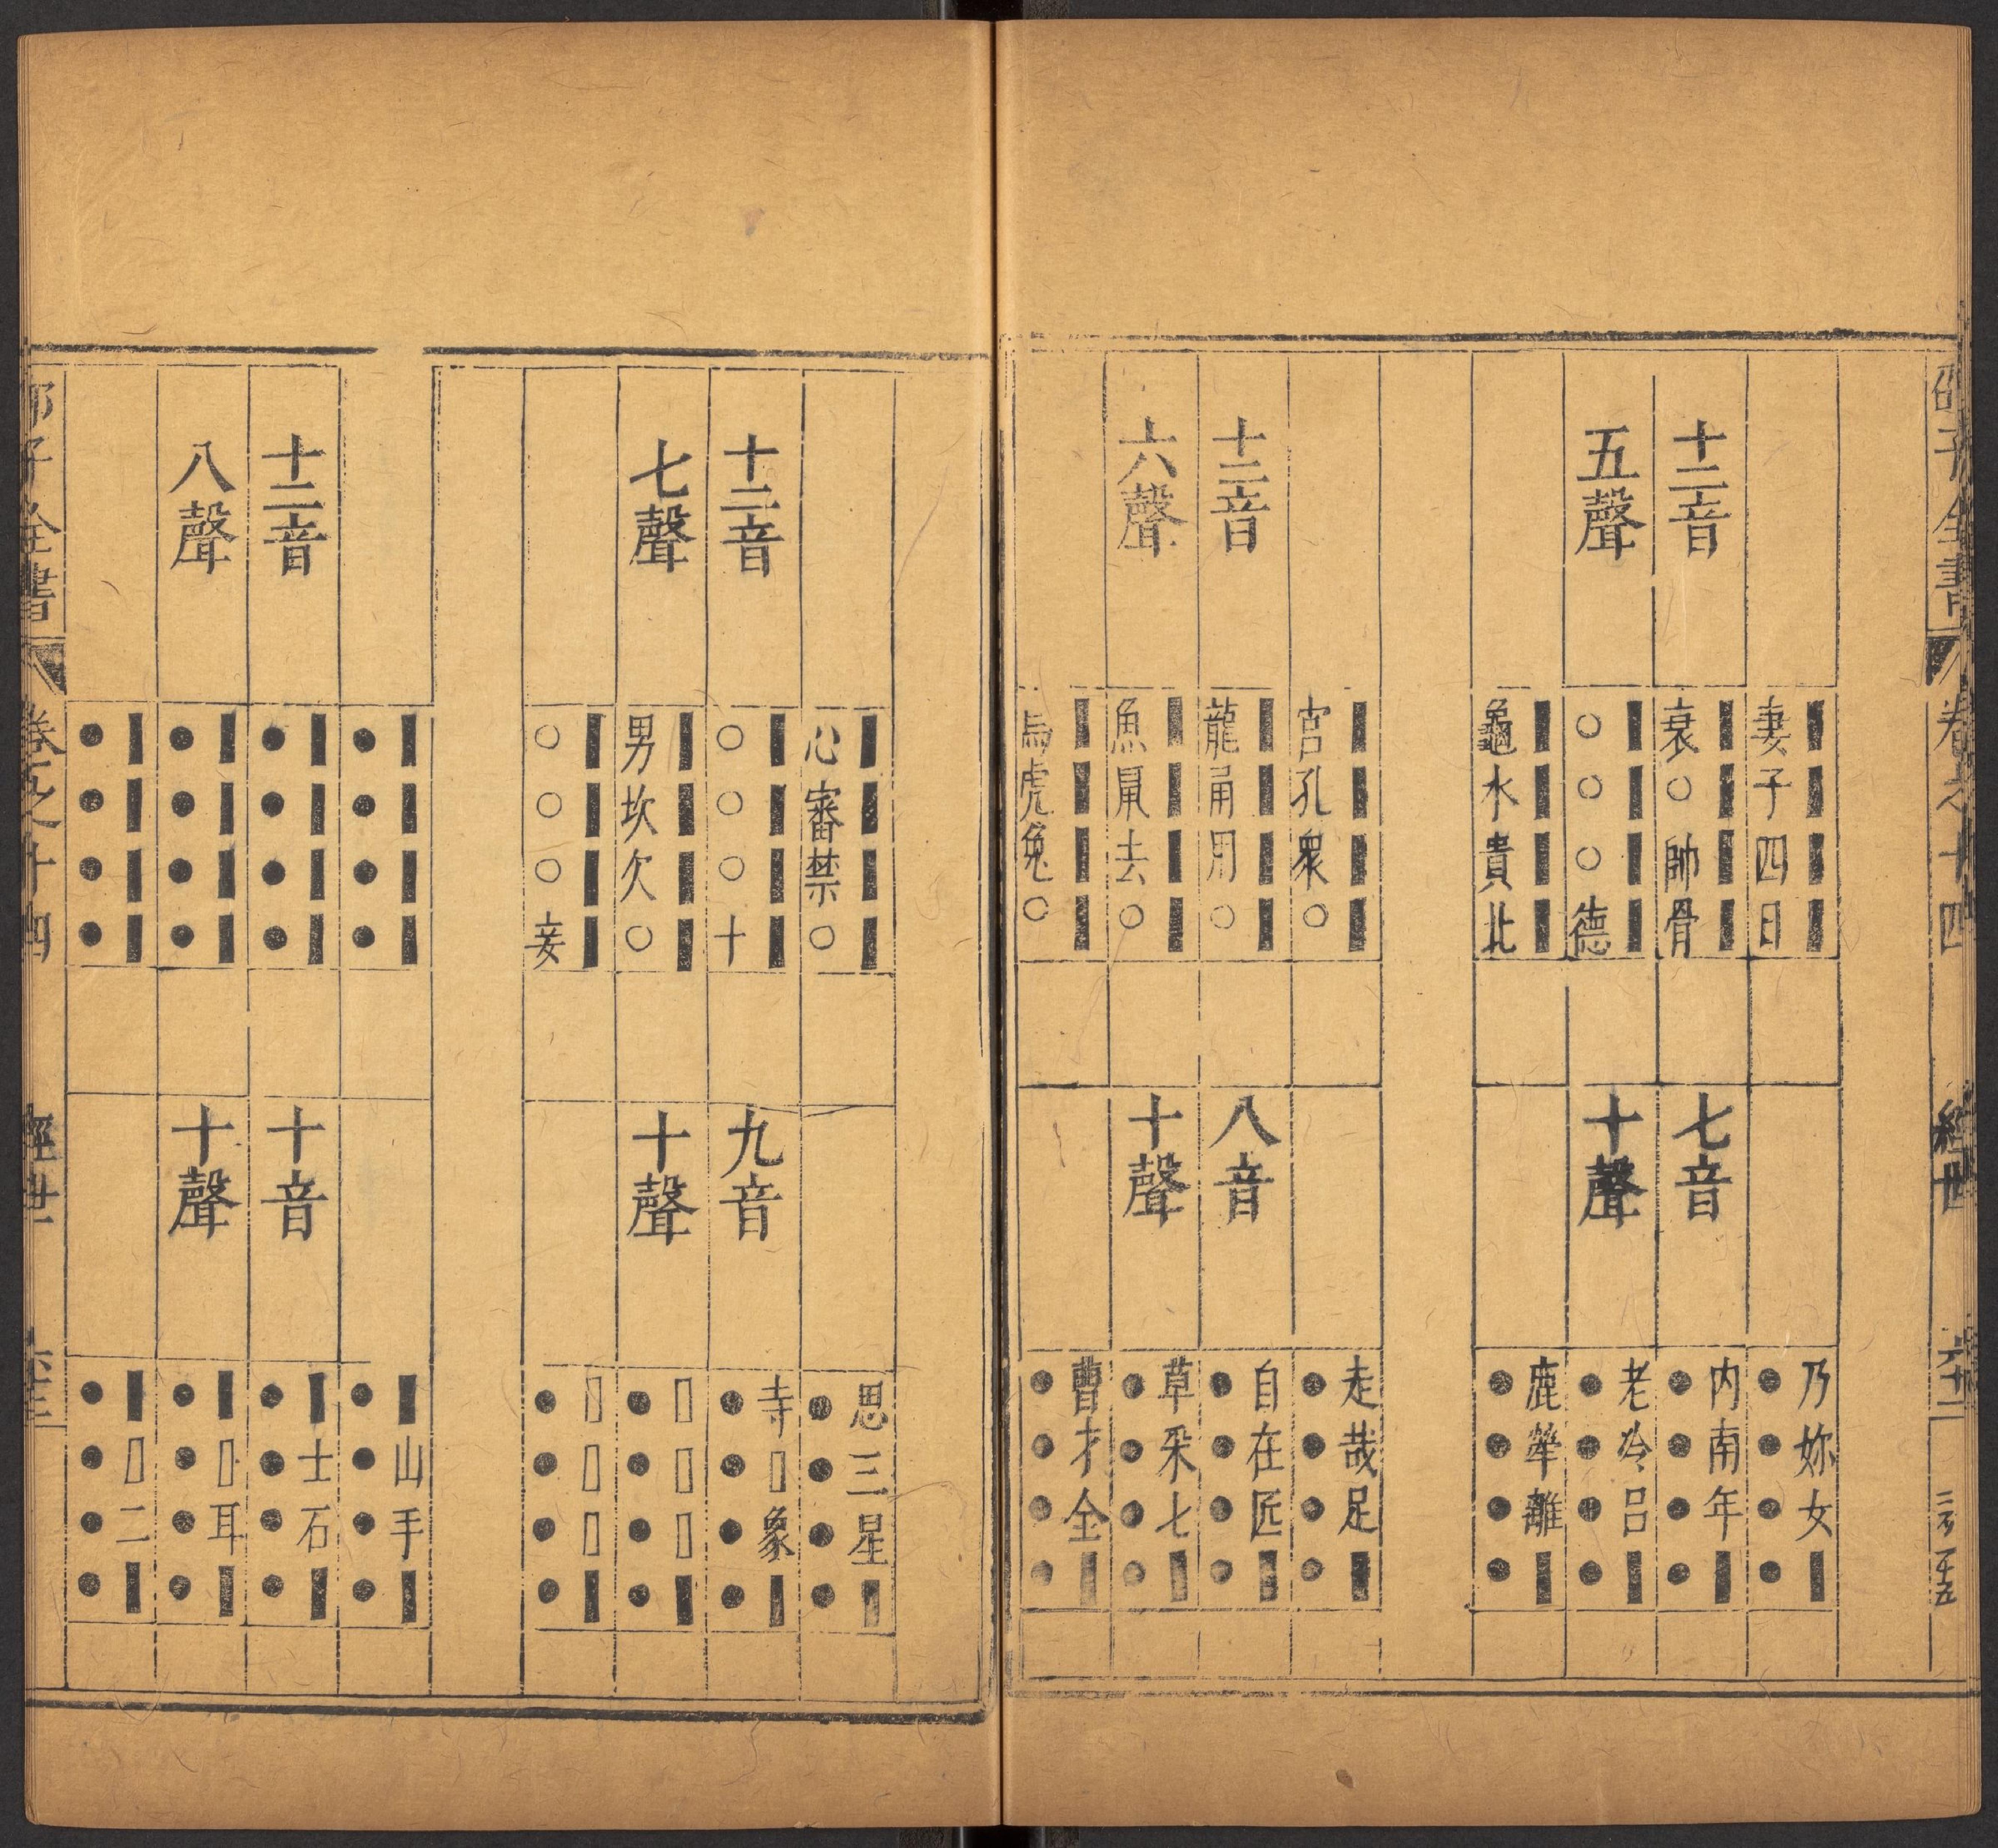 邵子全書
卷之十四
經世
六十二
十二音
五聲
妻子四日
衰○帥骨
○○○德
龜水貴北
七音
十聲
乃妳女■
●●●●
內南年■
●●●●
老冷呂■
●●●●
鹿犖離■
●●●●
十二音
六聲
宮孔衆○
龍甬用○
魚鼠去○
烏虎兔○
八音
十聲
走哉足■
●●●●
自在匠■
●●●●
草采七■
●●●●
曹才全■
●●●●
十二音
七聲
■■■■
心審禁○
■■■■
○○○十
■■■■
男坎欠○
■■■■
○○○妾
九音
十聲
思三星■
●●●●
寺□象■
●●●●
□□□■
●●●●
□□□■
●●●●
十二音
八聲
■■■■
●●●●
■■■■
●●●●
■■■■
●●●●
■■■■
●●●●
十音
十聲
■山手■
●●●●
■士石■
●●●●
■□耳■
●●●●
■□二■
●●●●
邵子全書
卷之十四
經世